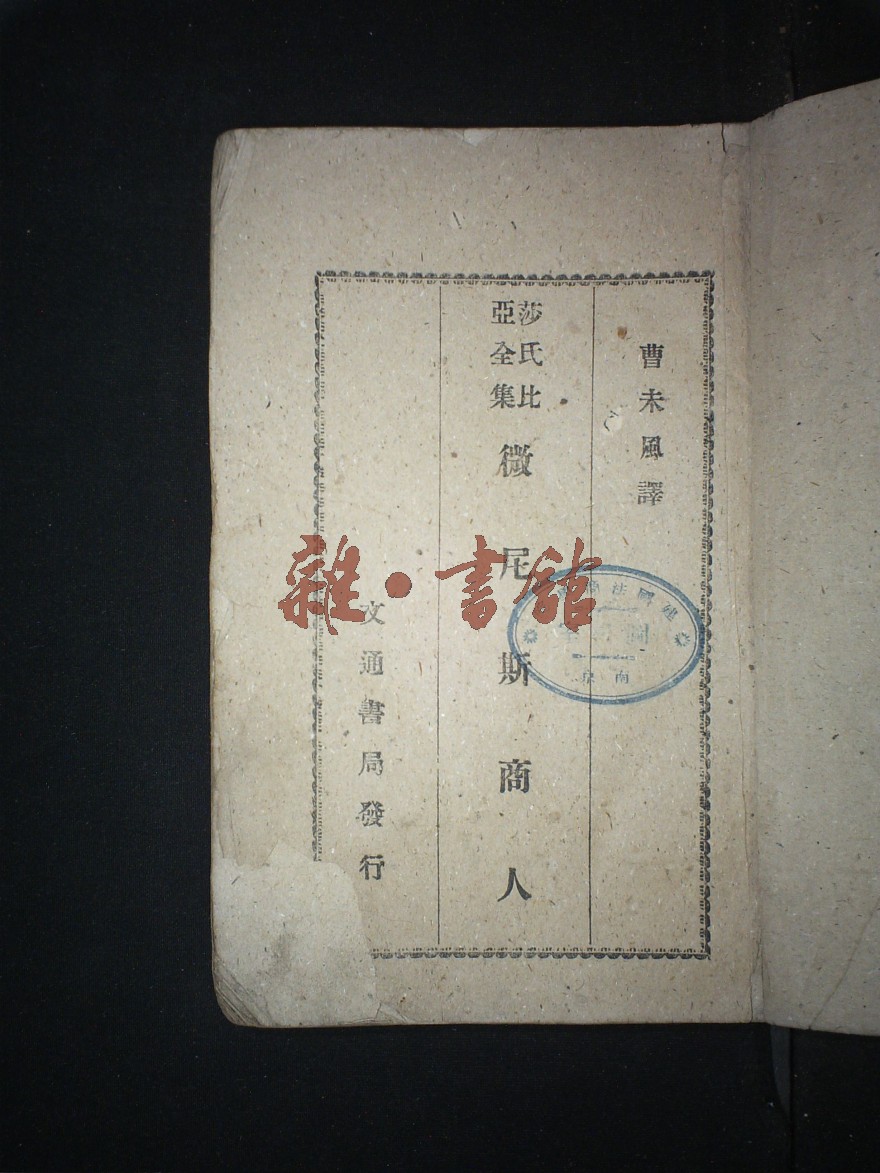 曹未風譯
莎氏比
亞全集
微尼斯商人
文通書局發行
雜·書館
南京